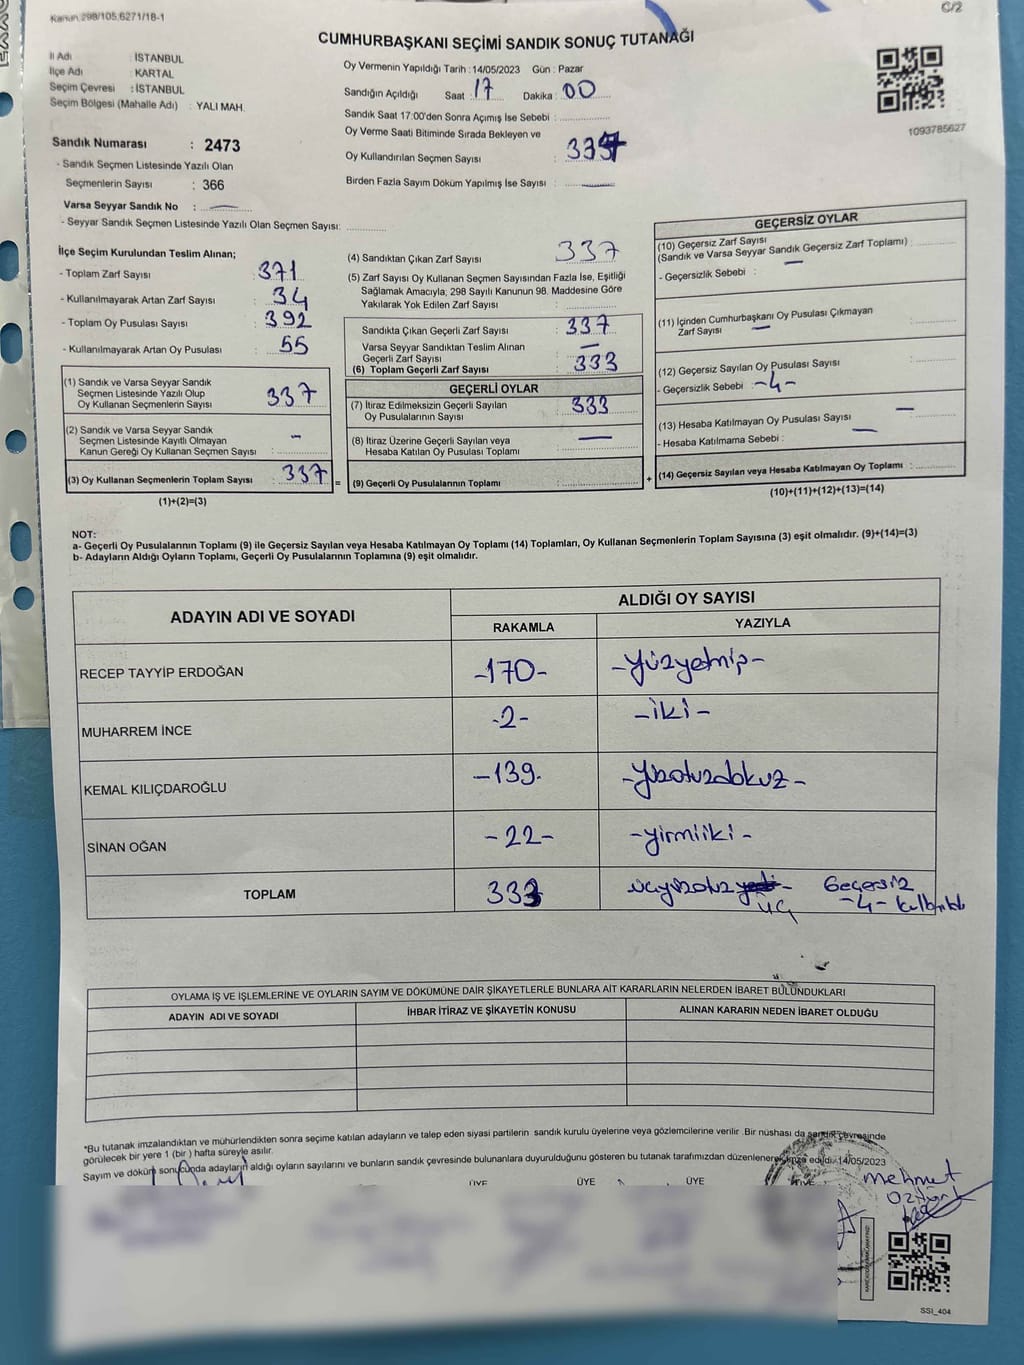 Kanun 298/105,6271/18-1
C/2
CUMHURBAŞKANI SEÇİMİ SANDIK SONUÇ TUTANAĞI
İl Adı : İSTANBUL
İlçe Adı : KARTAL
Seçim Çevresi : İSTANBUL
Seçim Bölgesi (Mahalle Adı) : YALI MAH.
Oy Vermenin Yapıldığı Tarih : 14/05/2023 Gün : Pazar
Sandığın Açıldığı Saat : 17 Dakika : 00
Sandık Saat 17:00'den Sonra Açımış İse Sebebi :
Oy Verme Saati Bitiminde Sırada Bekleyen ve
Oy Kullandırılan Seçmen Sayısı : 337
Birden Fazla Sayım Döküm Yapılmış İse Sayısı :
1093785627
Sandık Numarası : 2473
- Sandık Seçmen Listesinde Yazılı Olan
Seçmenlerin Sayısı : 366
Varsa Seyyar Sandık No :
- Seyyar Sandık Seçmen Listesinde Yazılı Olan Seçmen Sayısı:
İlçe Seçim Kurulundan Teslim Alınan;
- Toplam Zarf Sayısı : 371
- Kullanılmayarak Artan Zarf Sayısı : 34
- Toplam Oy Pusulası Sayısı : 392
- Kullanılmayarak Artan Oy Pusulası : 55
(1) Sandık ve Varsa Seyyar Sandık
Seçmen Listesinde Yazılı Olup
Oy Kullanan Seçmenlerin Sayısı : 337
(2) Sandık ve Varsa Seyyar Sandık
Seçmen Listesinde Kayıtlı Olmayan
Kanun Gereği Oy Kullanan Seçmen Sayısı : -
(3) Oy Kullanan Seçmenlerin Toplam Sayısı : 337 =
(1)+(2)=(3)
(4) Sandıktan Çıkan Zarf Sayısı : 337
(5) Zarf Sayısı Oy Kullanan Seçmen Sayısından Fazla İse, Eşitliği
Sağlamak Amacıyla; 298 Sayılı Kanunun 98. Maddesine Göre
Yakılarak Yok Edilen Zarf Sayısı :
Sandıkta Çıkan Geçerli Zarf Sayısı : 337
Varsa Seyyar Sandıktan Teslim Alınan
Geçerli Zarf Sayısı : -
(6) Toplam Geçerli Zarf Sayısı : 333
GEÇERLİ OYLAR
(7) İtiraz Edilmeksizin Geçerli Sayılan
Oy Pusulalarının Sayısı : 333
(8) İtiraz Üzerine Geçerli Sayılan veya
Hesaba Katılan Oy Pusulası Toplamı : -
(9) Geçerli Oy Pusulalarının Toplamı : +
GEÇERSİZ OYLAR
(10) Geçersiz Zarf Sayısı
(Sandık ve Varsa Seyyar Sandık Geçersiz Zarf Toplamı) :
- Geçersizlik Sebebi : -
(11) İçinden Cumhurbaşkanı Oy Pusulası Çıkmayan
Zarf Sayısı - :
(12) Geçersiz Sayılan Oy Pusulası Sayısı :
- Geçersizlik Sebebi : -4-
(13) Hesaba Katılmayan Oy Pusulası Sayısı : -
- Hesaba Katılmama Sebebi : -
(14) Geçersiz Sayılan veya Hesaba Katılmayan Oy Toplamı :
(10)+(11)+(12)+(13)=(14)
NOT:
a- Geçerli Oy Pusulalarının Toplamı (9) ile Geçersiz Sayılan veya Hesaba Katılmayan Oy Toplamı (14) Toplamları, Oy Kullanan Seçmenlerin Toplam Sayısına (3) eşit olmalıdır. (9)+(14)=(3)
b- Adayların Aldığı Oyların Toplamı, Geçerli Oy Pusulalarının Toplamına (9) eşit olmalıdır.
ADAYIN ADI VE SOYADI
ALDIĞI OY SAYISI
RAKAMLA YAZIYLA
RECEP TAYYİP ERDOĞAN -170- -yüzyetmiş-
MUHARREM İNCE -2- -iki-
KEMAL KILIÇDAROĞLU -139- -yüzotuzdokuz-
SİNAN OĞAN -22- -yirmiiki-
TOPLAM 333 üçyüzotuz yedi- Geçersiz
üç -4-
OYLAMA İŞ VE İŞLEMLERİNE VE OYLARIN SAYIM VE DÖKÜMÜNE DAİR ŞİKAYETLERLE BUNLARA AİT KARARLARIN NELERDEN İBARET BULUNDUKLARI
ADAYIN ADI VE SOYADI İHBAR İTİRAZ VE ŞİKAYETİN KONUSU ALINAN KARARIN NEDEN İBARET OLDUĞU
*Bu tutanak imzalandıktan ve mühürlendikten sonra seçime katılan adayların ve talep eden siyasi partilerin sandık kurulu üyelerine veya gözlemcilerine verilir .Bir nüshası da sandık çevresinde
görülecek bir yere 1 (bir ) hafta süreyle asılır.
Sayım ve döküm sonucunda adayların aldığı oyların sayılarını ve bunların sandık çevresinde bulunanlara duyurulduğunu gösteren bu tutanak tarafımızdan düzenlenerek imza edildi.14/05/2023
ÜYE ÜYE ÜYE ÜYE
Mehmet
SSI_404